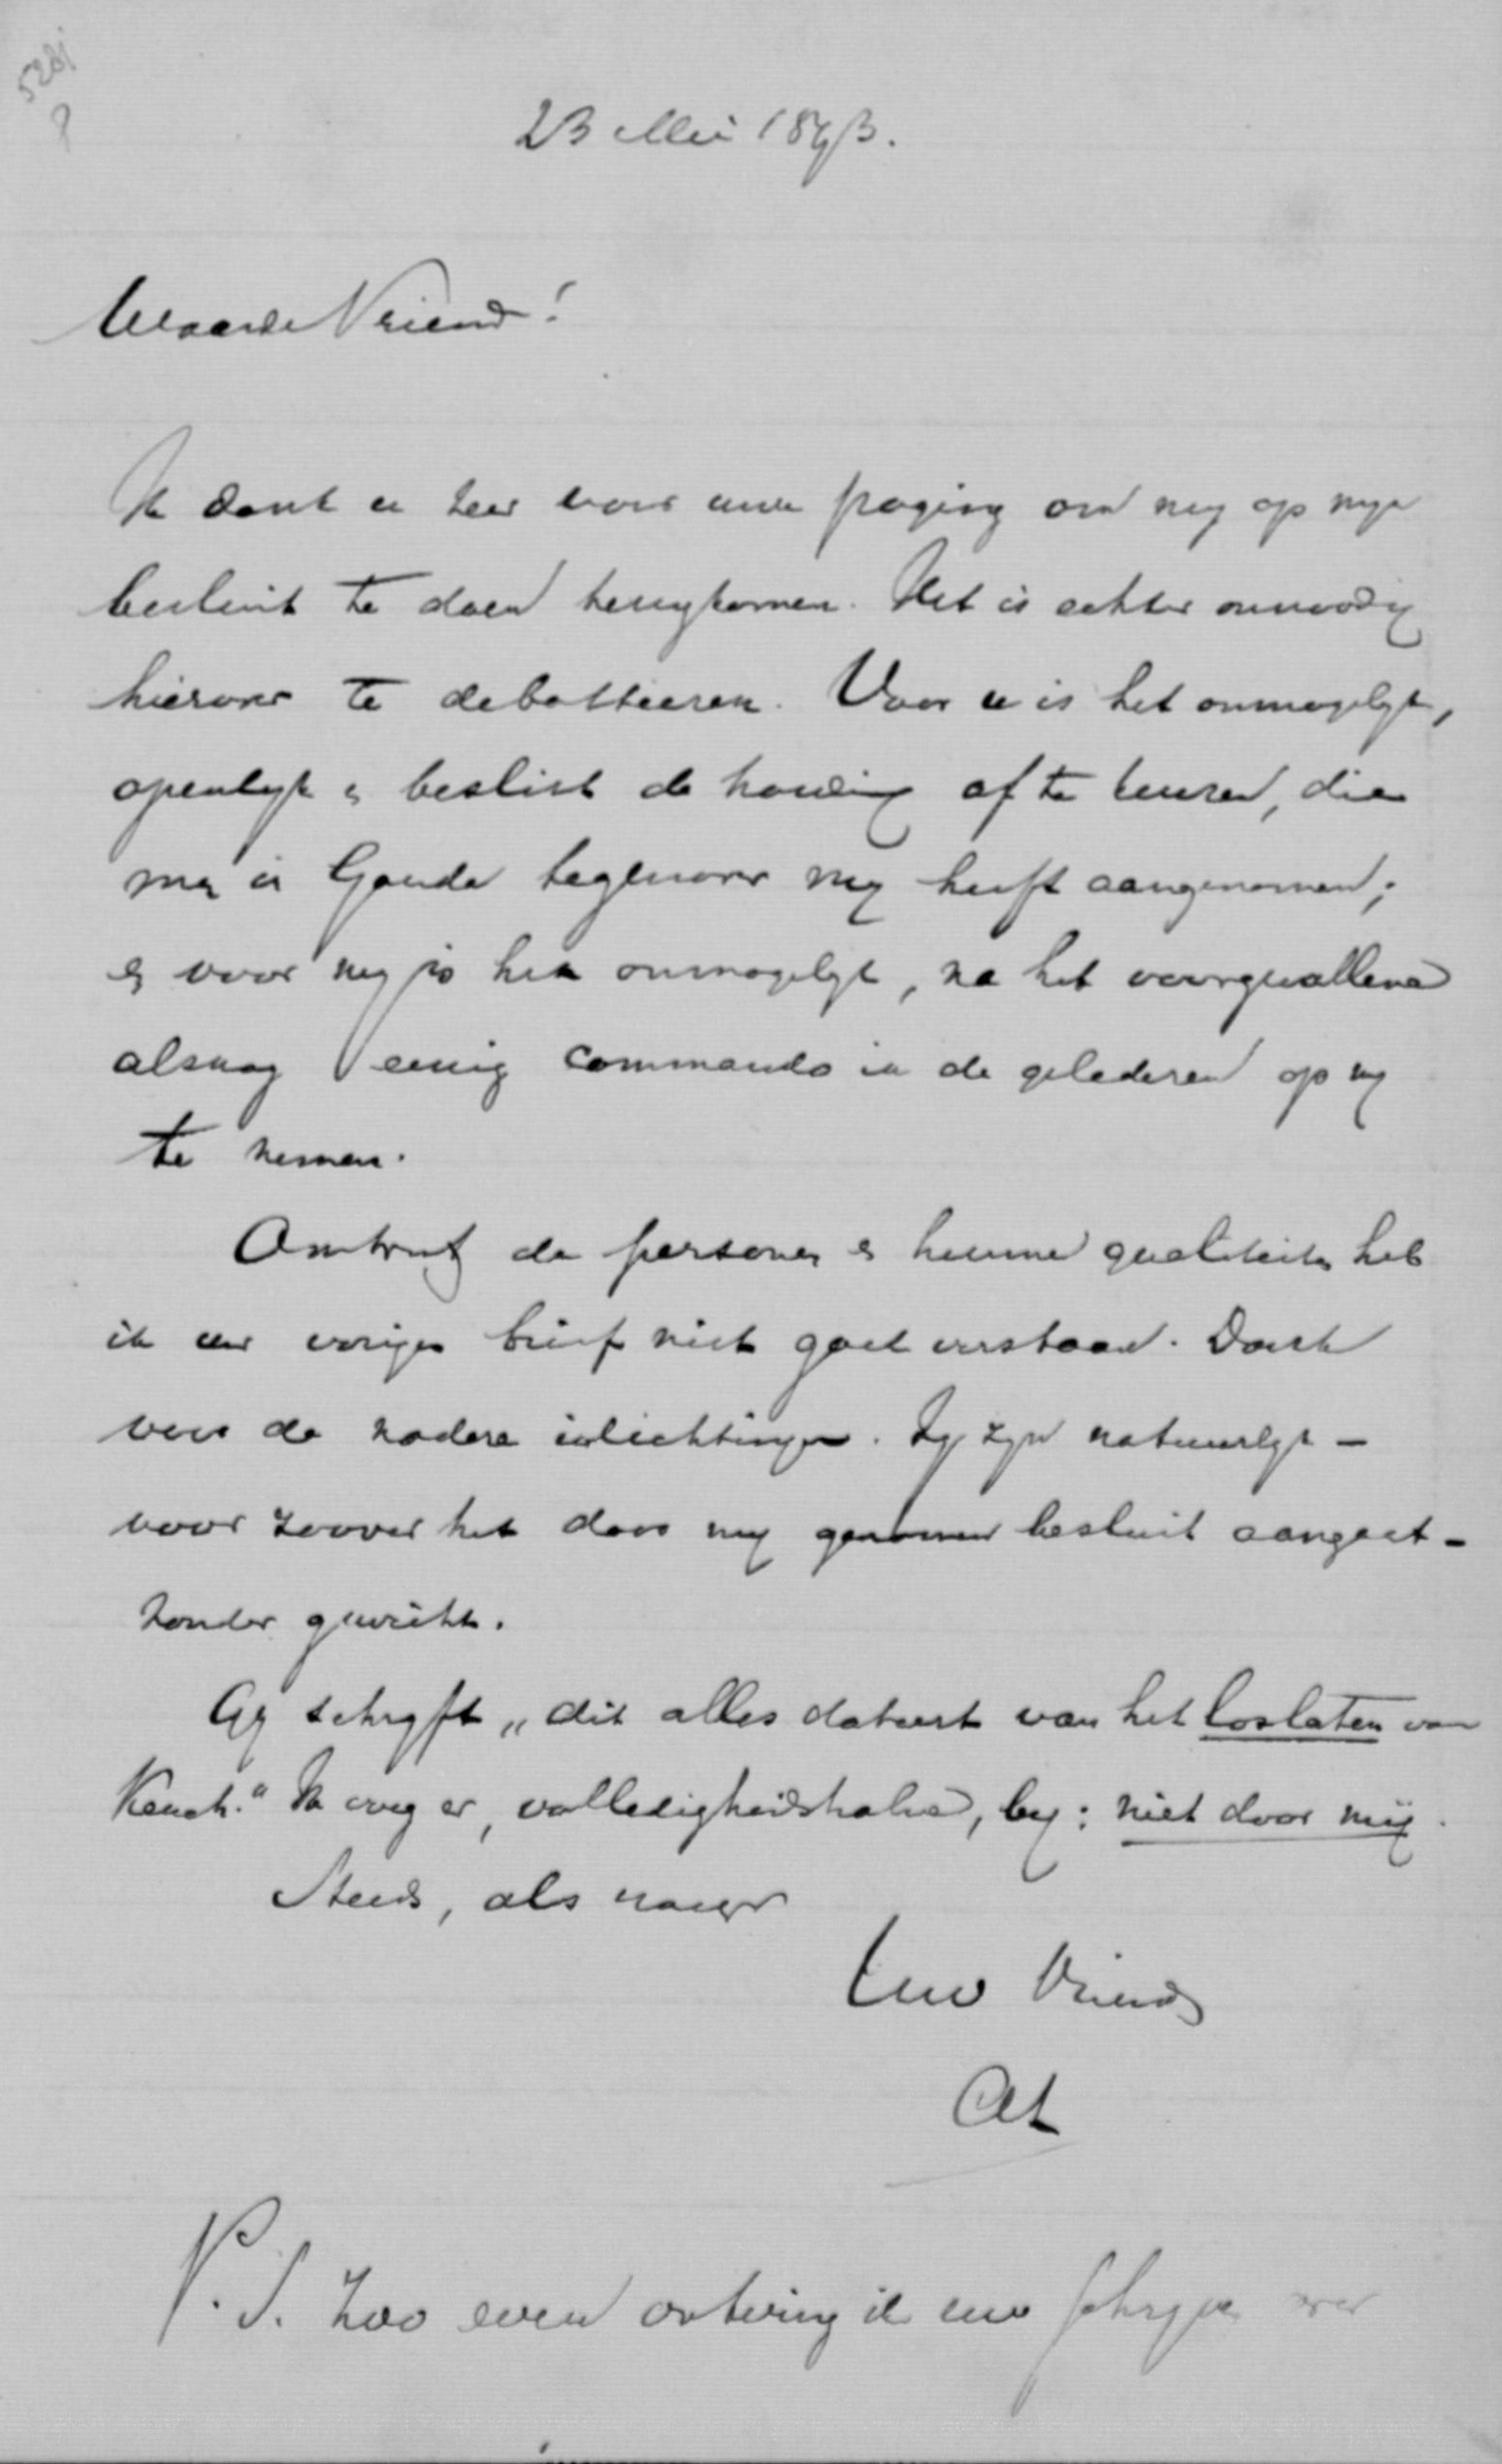 23 Mei 1873.
Waarde Vriend!
Ik dank u zeer voor uwe poging om my op myn
besluit te doen terugkomen. Het is echter onnoodig
hierover te debatteeren. Voor u is het onmogelyk,
openlyk & beslist de houding af te keuren, die
men in Gouda tegenover my heeft aangenomen;
& voor my is het onmogelyk, na het voorgevallene
alsnog eenig commando in de gelederen op my
te nemen.
Omtrent de personen & hunne qualiteiten heb
ik uw vorigen brief niet goed verstaan. Dank
voor de nadere inlichtingen. Zy zyn natuurlyk -
voor zoover het door my genomen besluit aangaat -
zonder gewicht.
Gy schryft „dit alles dateert van het loslaten van
Keuch." Ik voeg er, volledigheidshalve, by: niet door mij.
Steeds, als vroeger
Uw Vriend
P.S. Zoo even ontving ik uw schryven over